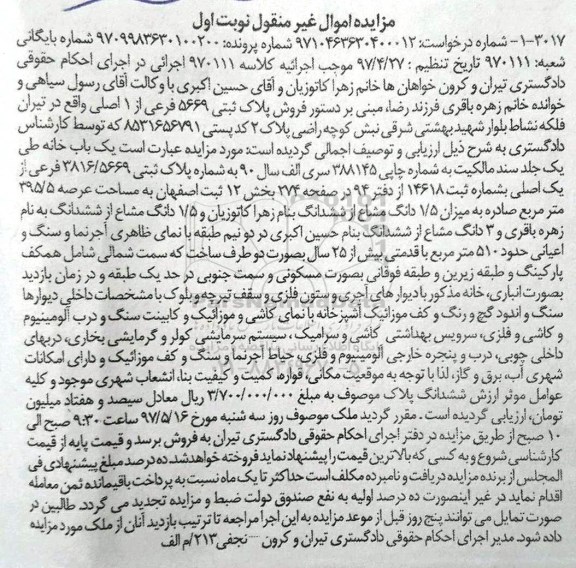 مزایده اموال غیر منقول نوبت اول
۱-۳۰۱۷- شماره درخواست: ۹۷۱۰۴۶۳۶۳۰۴۰۰۰۱۲ شماره پرونده: ۹۷۰۹۹۸۳۶۳۰۱۰۰۲۰۰ شماره بایگانی
شعبه: ۹۷۰۱۱۱ تاریخ تنظیم : ۹۷/۴/۲۷ موجب اجرائیه کلاسه ۹۷۰۱۱۱ اجرائی در اجرای احکام حقوقی
دادگستری تیران و کرون خواهان ها خانم زهرا کاتوزیان و آقای حسین اکبری با وکالت آقای رسول سیاهی و
خوانده خانم زهره باقری فرزند رضا، مبنی بر دستور فروش پلاک ثبتی ۵۶۶۹ فرعی از ۱ اصلی واقع در تیران
فلکه نشاط بلوار شهید بهشتی شرقی نبش کوچه راضی پلاک ۲ کد پستی ۸۵۳۱۶۵۶۷۹۱ که توسط کارشناس
دادگستری به شرح ذیل ارزیابی و توصیف اجمالی گردیده است: مورد مزایده عبارت است یک باب خانه طی
یک جلد سند مالکیت به شماره چاپی ۳۸۸۱۴۵ سری الف سال ۹۰ به شماره پلاک ثبتی ۳۸۱۶/۵۶۶۹ فرعی از
یک اصلی بشماره ثبت ۱۴۶۱۸ از دفتر ۹۴ در صفحه ۲۷۴ بخش ۱۲ ثبت اصفهان به مساحت عرصه ۳۹۵/۵
متر مربع صادره به میزان ۱/۵ دانگ مشاع از ششدانگ بنام زهرا کاتوزیان و ۱/۵ دانگ مشاع از ششدانگ به نام
زهره باقری و ۳ دانگ مشاع از ششدانگ بنام حسین اکبری در دو نیم طبقه با نمای ظاهری آجرنما و سنگ و
اعیانی حدود ۵۱۰ متر مربع با قدمتی بیش از ۲۵ سال بصورت دو طرف ساخت که سمت شمالی شامل همکف
پارکینگ و طبقه زیرین و طبقه فوقانی بصورت مسکونی و سمت جنوبی در حد یک طبقه و در زمان بازدید
بصورت انباری، خانه مذکور با دیوار های آجری و ستون فلزی و سقف تیرچه و بلوک با مشخصات داخلی دیوارها
سنگ و اندود گچ و رنگ و کف موزائیک آشپزخانه با نمای کاشی و موزائیک و کابینت سنگ و درب آلومینیوم
و کاشی و فلزی، سرویس بهداشتی کاشی و سرامیک ، سیستم سرمایشی کولر و گرمایشی بخاری، دربهای
داخلی چوبی، درب و پنجره خارجی آلومینیوم و فلزی، حیاط آجرنما و سنگ و کف موزائیک و دارای امکانات
شهری آب، برق و گاز، لذا با توجه به موقعیت مکانی، قواره کمیت و کیفیت بنا، انشعاب شهری موجود و کلیه
عوامل موثر ارزش ششدانگ پلاک موصوف به مبلغ ۳/۷۰۰/۰۰۰/۰۰۰ ریال معادل سیصد و هفتاد میلیون
تومان، ارزیابی گردیده است . مقرر گردید ملک موصوف روز سه شنبه مورخ ۹۷/۵/۱۶ ساعت ۹:۳۰ صبح الی
۱۰ صبح از طریق مزایده در دفتر اجرای احکام حقوقی دادگستری تیران به فروش برسد و قیمت پایه از قیمت
کارشناسی شروع و به کسی که بالاترین قیمت را پیشنهاد نماید فروخته خواهد شد. ده درصد مبلغ پیشنهادی فی
المجلس از برنده مزایده دریافت و نامبرده مکلف است حداکثر تا یک ماه نسبت به پرداخت باقیمانده ثمن معامله
اقدام نماید در غیر اینصورت ده درصد اولیه به نفع صندوق دولت ضبط و مزایده تجدید می گردد. طالبین در
صورت تمایل می توانند پنج روز قبل از موعد مزایده به این اجرا مراجعه تا ترتیب بازدید آنان از ملک مورد مزایده
داده شود. مدیر اجرای احکام حقوقی دادگستری تیران و کرون ---- نجفی ۲۱۳/م الف